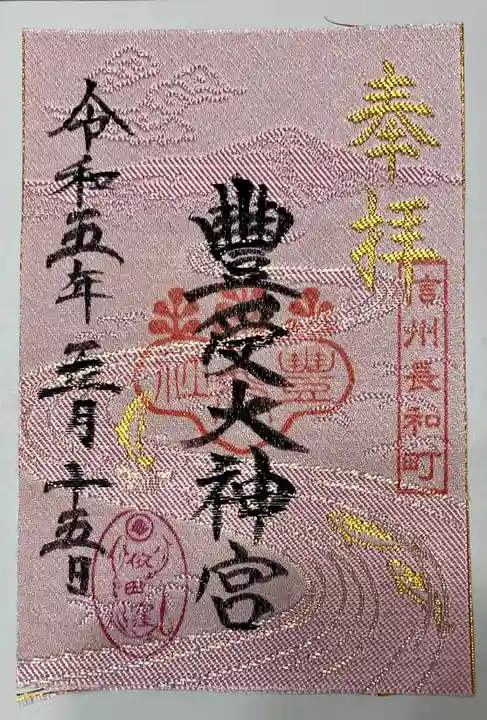 奉拝
信州長和町
豊受大神宮
令和五年三月十五日